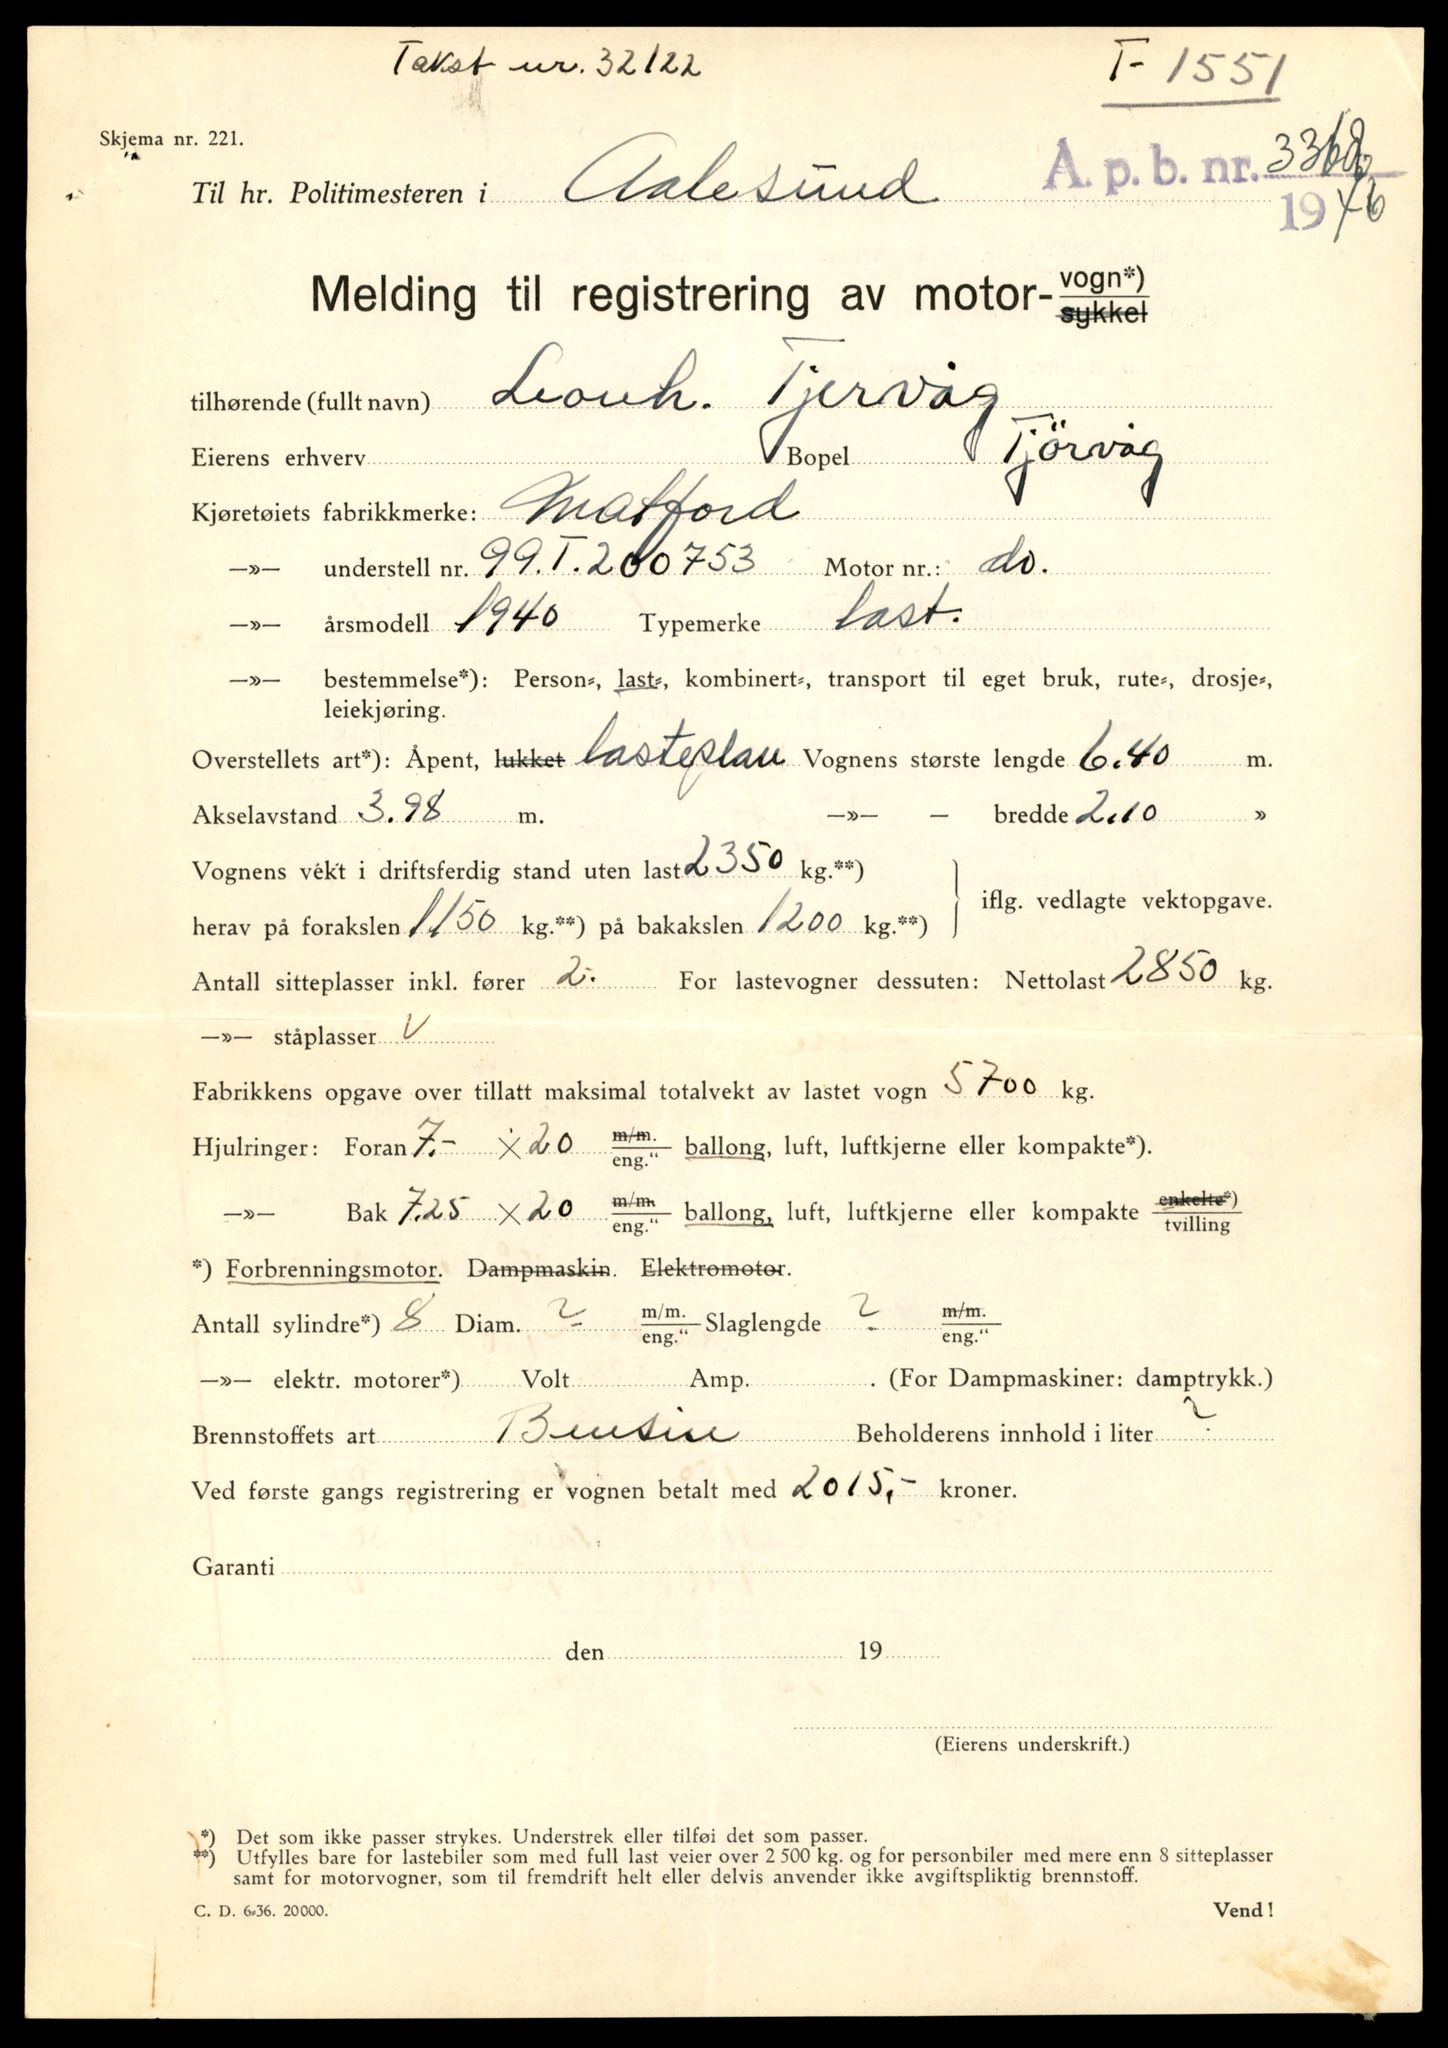 Takst nr. 32122
T- 1551
Skjema nr. 221.
A. p. b. nr.
1946
Til hr. Politimesteren i Aalesund
Melding til registrering av motor- vogn*) sykkel
tilhørende (fullt navn) Leonh. Tjervåg
Eierens erhverv Bopel Tjörvåg
Kjøretøiets fabrikkmerke: Matford
—»— understell nr. 99.T.200753 Motor nr.: do.
—»— årsmodell 1940 Typemerke last.
—»— bestemmelse*): Person-, last-, kombinert-, transport til eget bruk, rute-, drosje-,
leiekjøring.
Overstellets art*): Åpent, lukket lasteplan Vognens største lengde 6.40 m.
Akselavstand 3.98 m. —»— — bredde 2.10 »
Vognens vekt i driftsferdig stand uten last 2350 kg.**)
herav på forakslen 1150 kg.**) på bakakslen 1200 kg.**)
iflg. vedlagte vektopgave.
Antall sitteplasser inkl. fører 2.- For lastevogner dessuten: Nettolast 2850 kg.
—»— ståplasser
Fabrikkens opgave over tillatt maksimal totalvekt av lastet vogn 5700 kg.
Hjulringer: Foran 7.- × 20 m/m. eng." ballong, luft, luftkjerne eller kompakte*).
—»— Bak 7.25 × 20 m/m eng." ballong, luft, luftkjerne eller kompakte enkelte*) tvilling
*) Forbrenningsmotor. Dampmaskin. Elektromotor.
Antall sylindre*) 8 Diam. ? m/m. eng." Slaglengde ? m/m. eng."
—»— elektr. motorer*) Volt Amp. . (For Dampmaskiner: damptrykk.)
Brennstoffets art Bensin Beholderens innhold i liter ?
Ved første gangs registrering er vognen betalt med 2015,- kroner.
Garanti
den 19
(Eierens underskrift.)
*) Det som ikke passer strykes. Understrek eller tilføi det som passer.
**) Utfylles bare for lastebiler som med full last veier over 2 500 kg. og for personbiler med mere enn 8 sitteplasser
samt for motorvogner, som til fremdrift helt eller delvis anvender ikke avgiftspliktig brennstoff.
C. D. 6-36. 20000.
Vend!